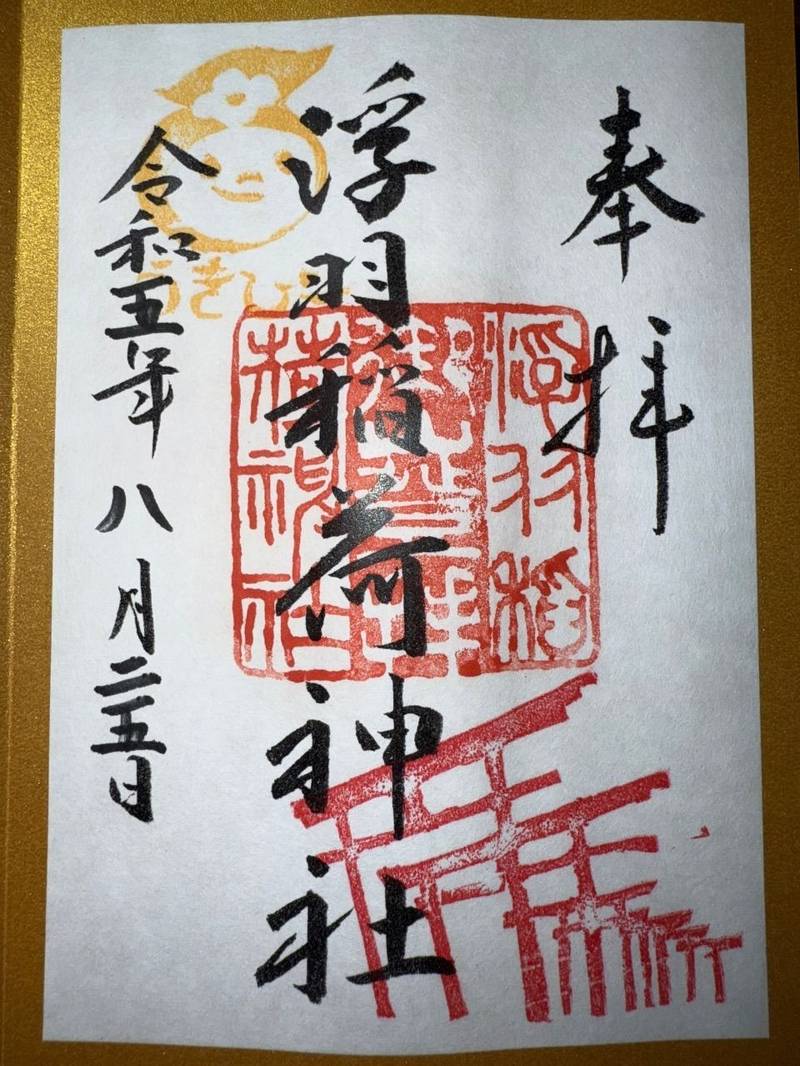 奉拝
浮羽稲荷神社
令和五年八月二五日
浮羽稲
荷神社